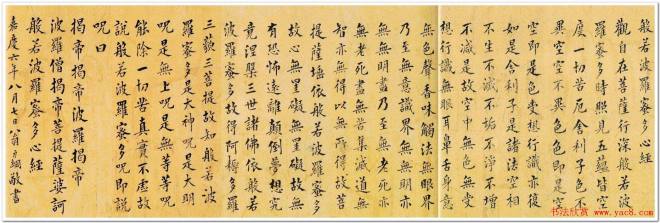 般若波羅蜜多心經
觀自在菩薩行深般若波
羅蜜多時照見五蘊皆空
度一切苦厄舍利子色不
異空空不異色色即是空
空即是色受想行識亦復
如是舍利子是諸法空相
不生不滅不垢不淨不增
不減是故空中無色無受
想行識無眼耳鼻舌身意
無色聲香味觸法無眼界
乃至無意識界無無明亦
無無明盡乃至無老死亦
無老死盡無苦集滅道無
智亦無得以無所得故菩
提薩埵依般若波羅蜜多
故心無罣礙無罣礙故無
有恐怖遠離顛倒夢想究
竟涅槃三世諸佛依般若
波羅蜜多故得阿耨多羅
三藐三菩提故知般若波
羅蜜多是大神呪是大明
呪是無上呪是無等等呪
能除一切苦真實不虛故
說般若波羅蜜多呪即說
呪曰
揭帝揭帝波羅揭帝
波羅僧揭帝菩提薩婆訶
般若波羅蜜多心經
嘉慶六年八月七日翁方綱敬書
书法欣赏
www.yac8.com